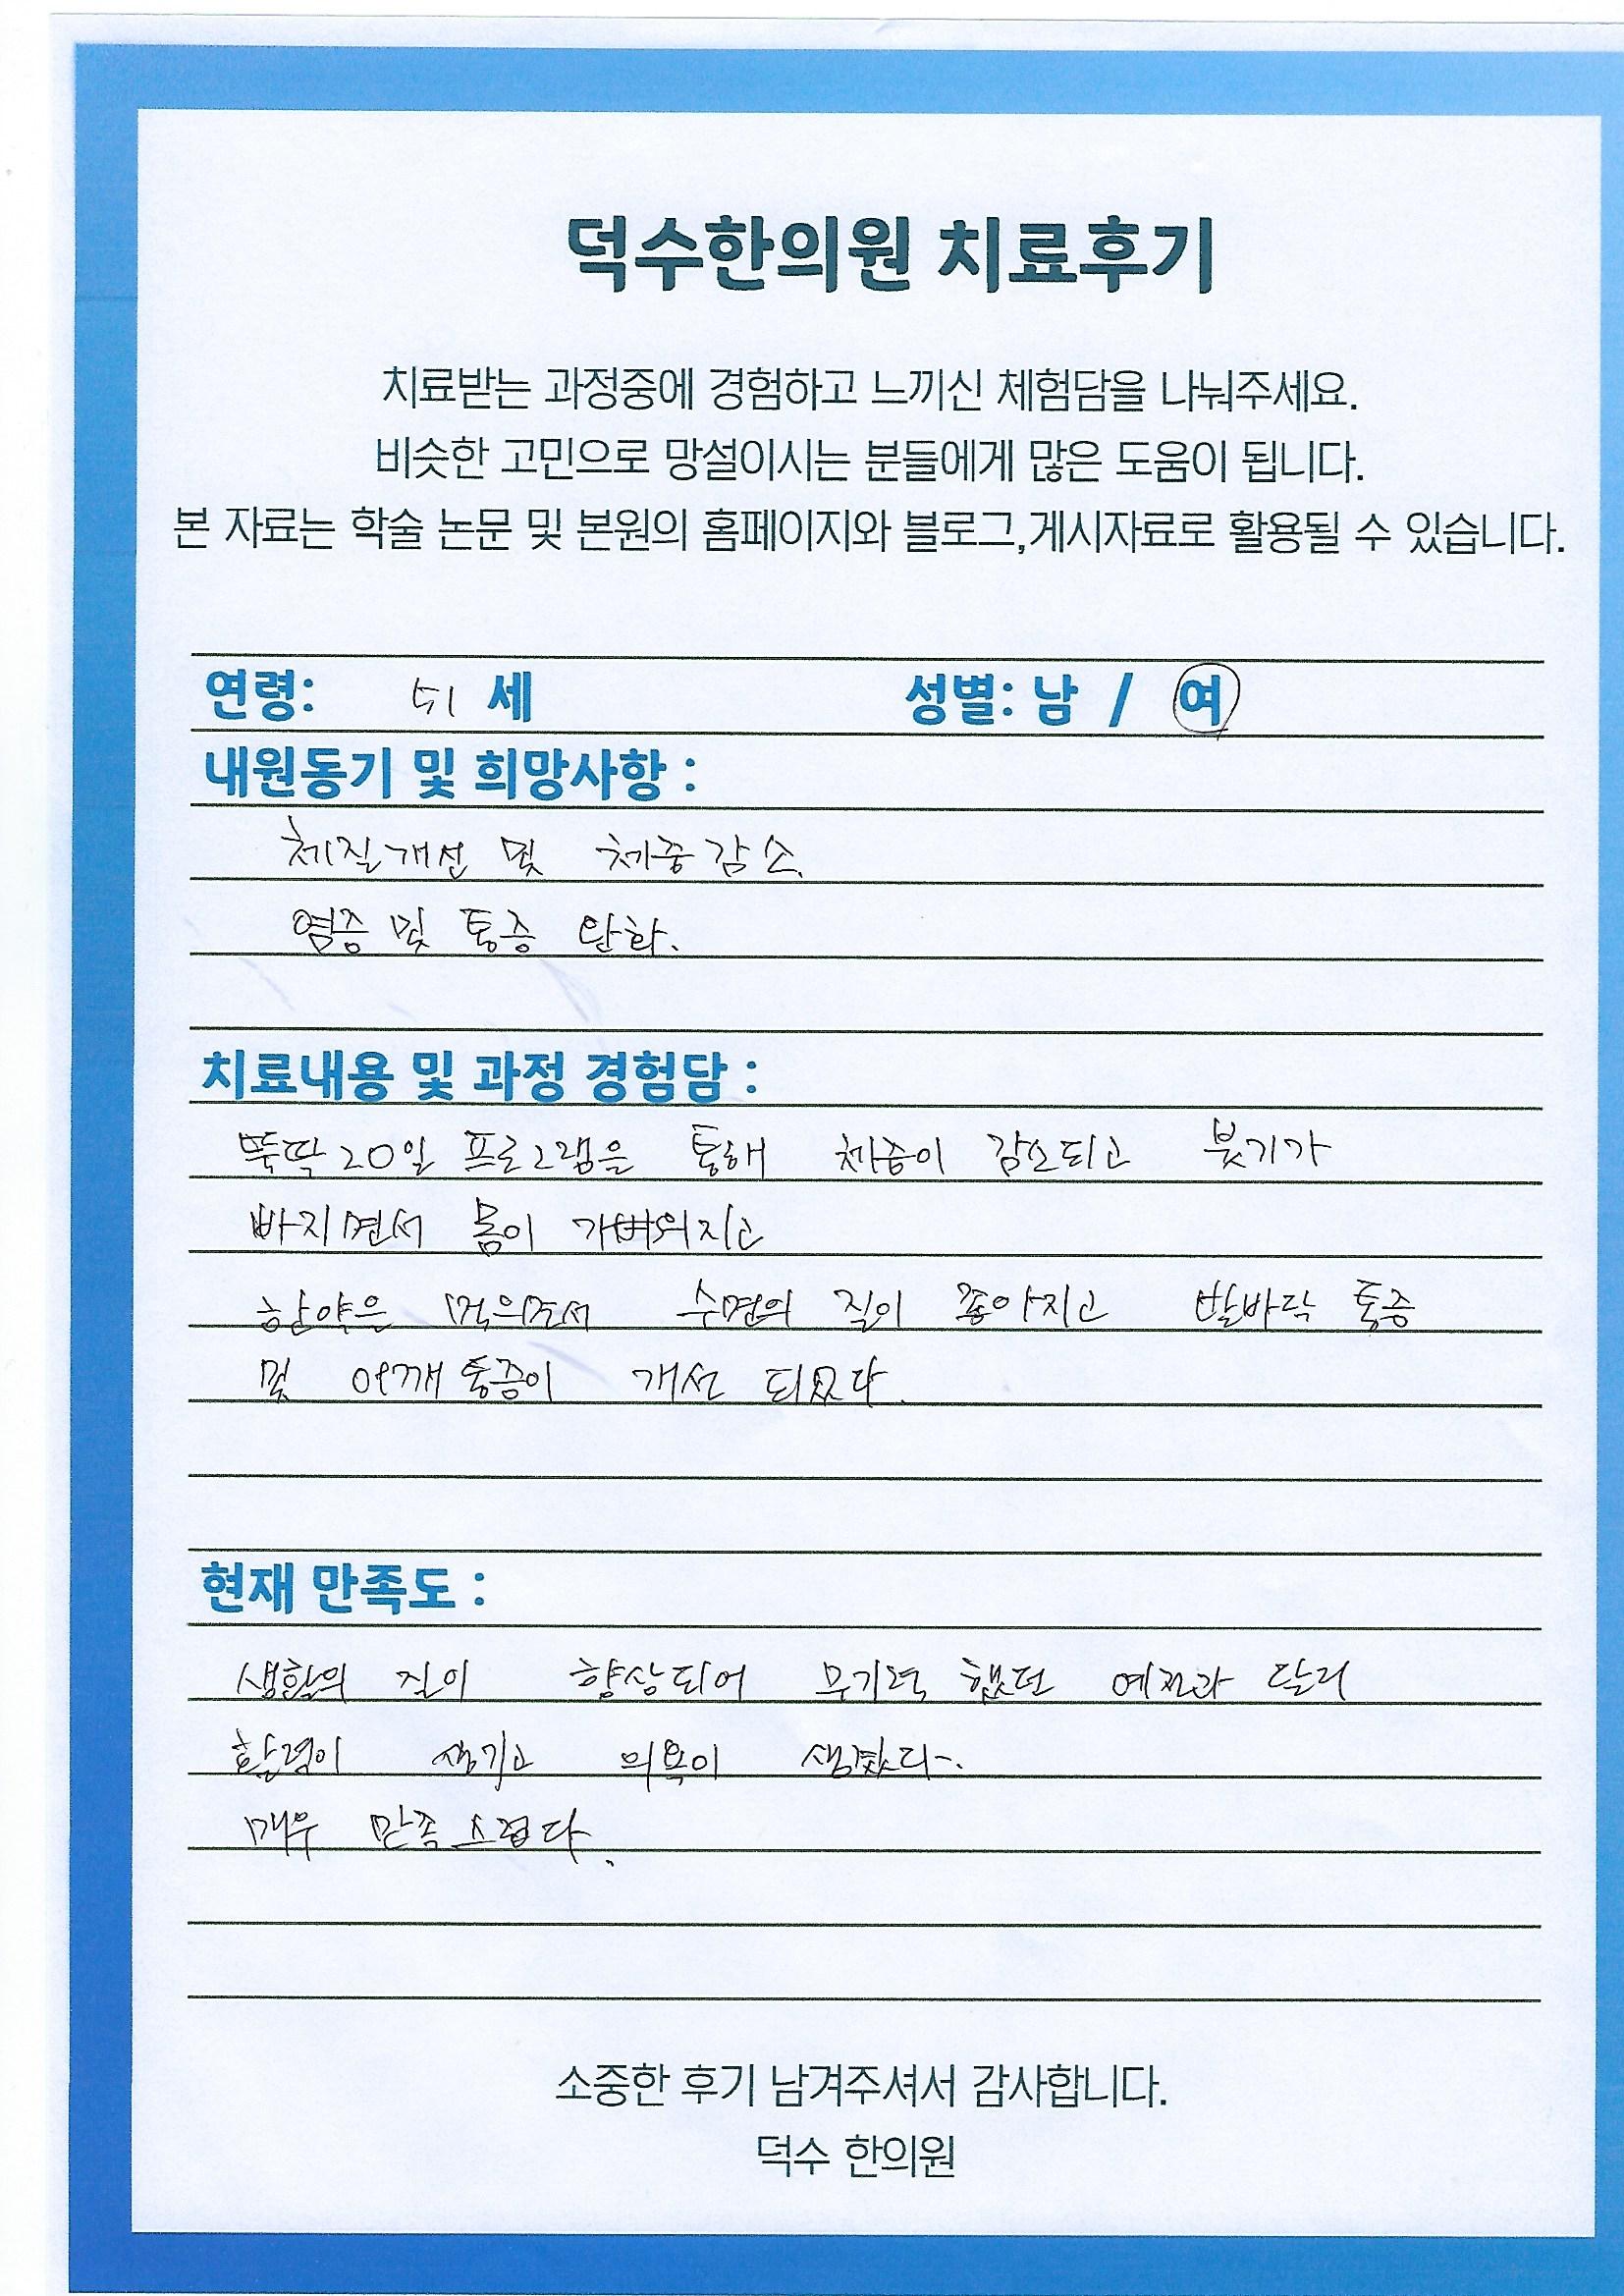 덕수한의원 치료후기
치료받는 과정중에 경험하고 느끼신 체험담을 나눠주세요.
비슷한 고민으로 망설이시는 분들에게 많은 도움이 됩니다.
본 자료는 학술 논문 및 본원의 홈페이지와 블로그,게시자료로 활용될 수 있습니다.
연령: 51 세 성별: 남 / 여
내원동기 및 희망사항 :
체질개선 및 체중감소.
염증 및 통증 완화.
치료내용 및 과정 경험담 :
뚝딱20일 프로그램을 통해 체중이 감소되고 붓기가
빠지면서 몸이 가벼워지고
한약은 먹으면서 수면의 질이 좋아지고 발바닥 통증
및 어깨 통증이 개선 되었다.
현재 만족도 :
생활의 질이 향상되어 무기력 했던 예전과 달리
활력이 생기고 의욕이 생겼다.
매우 만족스럽다.
소중한 후기 남겨주셔서 감사합니다.
덕수 한의원